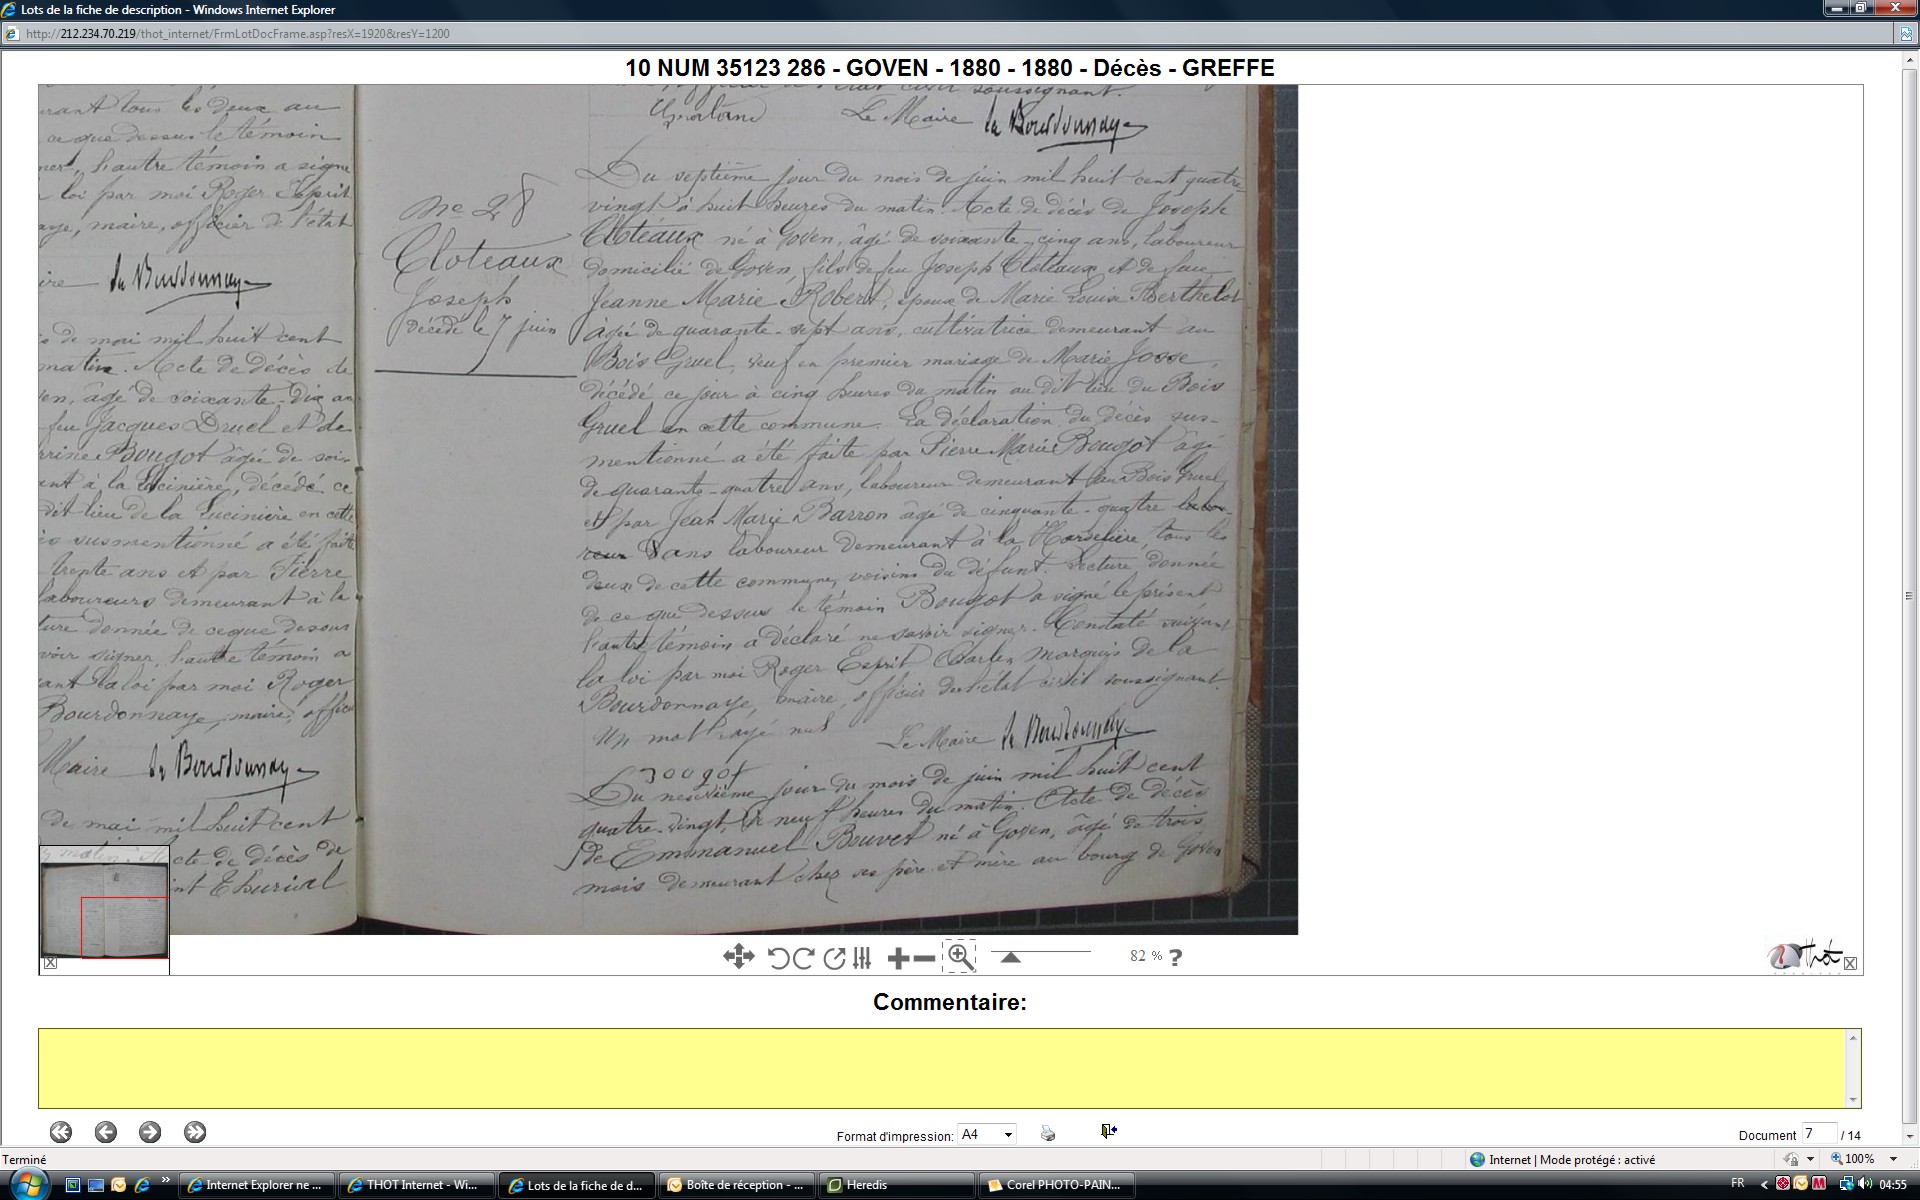 Lots de la fiche de description - Windows Internet Explorer
http://212.234.70.219/thot_internet/FrmLotDocFrame.asp?resX=1920&resY=1200
10 NUM 35123 286 - GOVEN - 1880 - 1880 - Décès - GREFFE
rant tous les deux au
ce que dessus le témoin
l'autre témoin a signé
loi par moi Roger Esprit
aye, maire, officier de l'état
ire de Bourdonnaye
de mai mil huit cent
matin. Acte de décès de
en, âgé de soixante-dix an
feu Jacques Druel et de
rrine Bougot âgée de soi-
ant à la Lucinière, décédé ce
dit lieu de la Lucinière en cette
ès susmentionné a été faite
trente ans et par Pierre
laboureurs demeurant à la
ture donnée de ce que dessus
voir signer, l'autre témoin a
ant la loi par moi Roger
Bourdonnaye, maire, offici
Maire de Bourdonnaye
de mai mil huit cent
matin. Acte de décès de
int Thurial
No 28
Cloteaux
Joseph
décédé le 7 juin
l'état civil soussignant.
Le Maire de Bourdonnaye
Du septième jour du mois de juin mil huit cent quatre-
vingt à huit heures du matin. Acte de décès de Joseph
Cloteaux né à Goven, âgé de soixante-cinq ans, laboureur
domicilié de Goven, fils de feu Joseph Cloteaux et de feue
Jeanne Marie Robert, époux de Marie Louise Berthelot
âgée de quarante-sept ans, cultivatrice demeurant au
Bois Gruel, veuf en premier mariage de Marie Josse
décédé ce jour à cinq heures du matin au dit lieu du Bois
Gruel en cette commune. La déclaration du décès sus-
mentionné a été faite par Pierre Marie Bougot âgé
de quarante-quatre ans, laboureur demeurant au Bois Gruel,
et par Jean Marie Barron âgé de cinquante-quatre labou-
reur ans laboureur demeurant à la Hardelière, tous les
deux de cette commune, voisins du défunt. Lecture donnée
de ce que dessus le témoin Bougot a signé le présent
l'autre témoin a déclaré ne savoir signer. Constaté suivant
la loi par moi Roger Esprit Charles marquis de la
Bourdonnaye, maire, officier de l'état civil soussignant.
Un mot rayé nul Le Maire de Bourdonnaye
Bougot
Du neuvième jour du mois de juin mil huit cent
quatre-vingt, à neuf heures du matin. Acte de décès
de Emmanuel Bouvet né à Goven, âgé de trois
mois demeurant chez ses père et mère au bourg de Goven
82 % ?
Thot
Commentaire:
Format d'impression: A4
Document 7 / 14
Terminé
Internet | Mode protégé : activé
100%
Internet Explorer ne ...
THOT Internet - Wi...
Lots de la fiche de d...
Boîte de réception - ...
Heredis
Corel PHOTO-PAIN...
FR
04:55